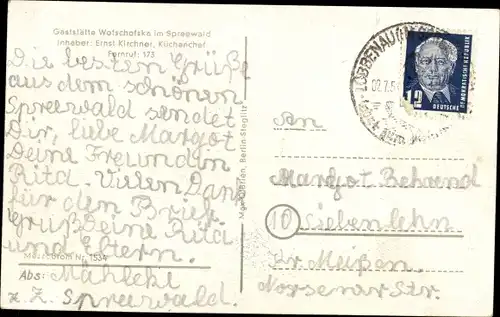 Gaststätte Wotschofska im Spreewald
Inheber: Ernst Kirchner, Küchenchef
Fernruf: 173
Die besten Grüße
aus dem schönen
Spreewald sendet
Dir, liebe Margot
Deine Freundin
Rita. Vielen Dank
für den Brief.
Grüß Deine Rita
und Eltern.
Abs: Mahleke
z. Z. Spreewald.
Berlin-Steglitz
LÜBBENAU
12
DEUTSCHE
DEMOKRATISCHE REPUBLIK
An
Margot Behrend
10 Siebenlehn
Kr. Meißen.
Str.